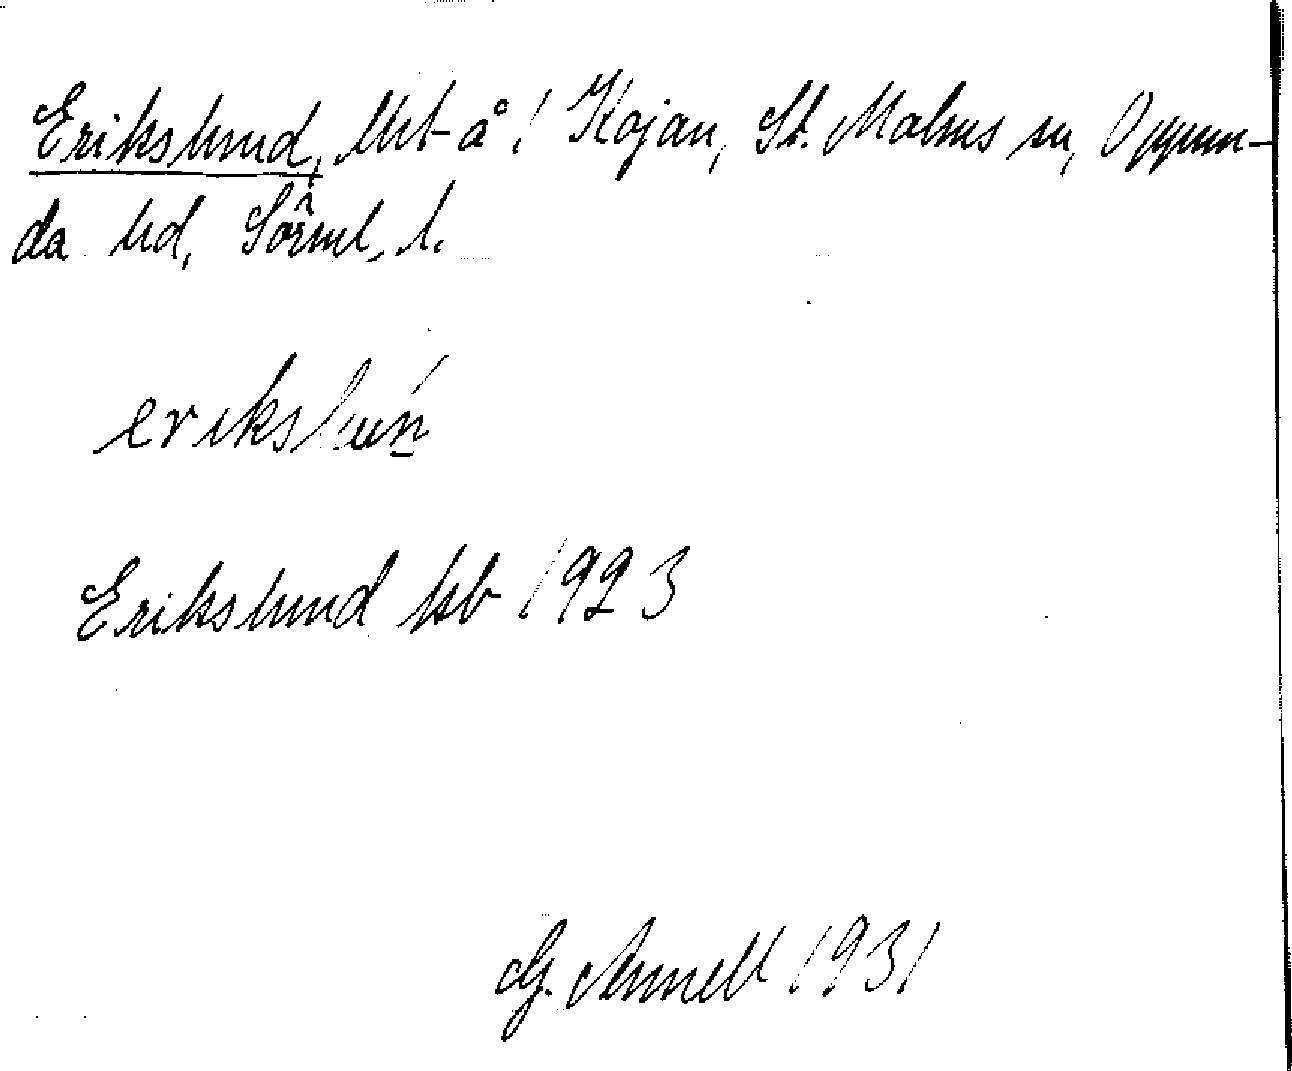 Erikslund, Utt å ! Kojan, St. Malms sn, Oppun-
da hd, Sörml. l.
erikslún
Erikslund kb 1923
G. Annell 1931